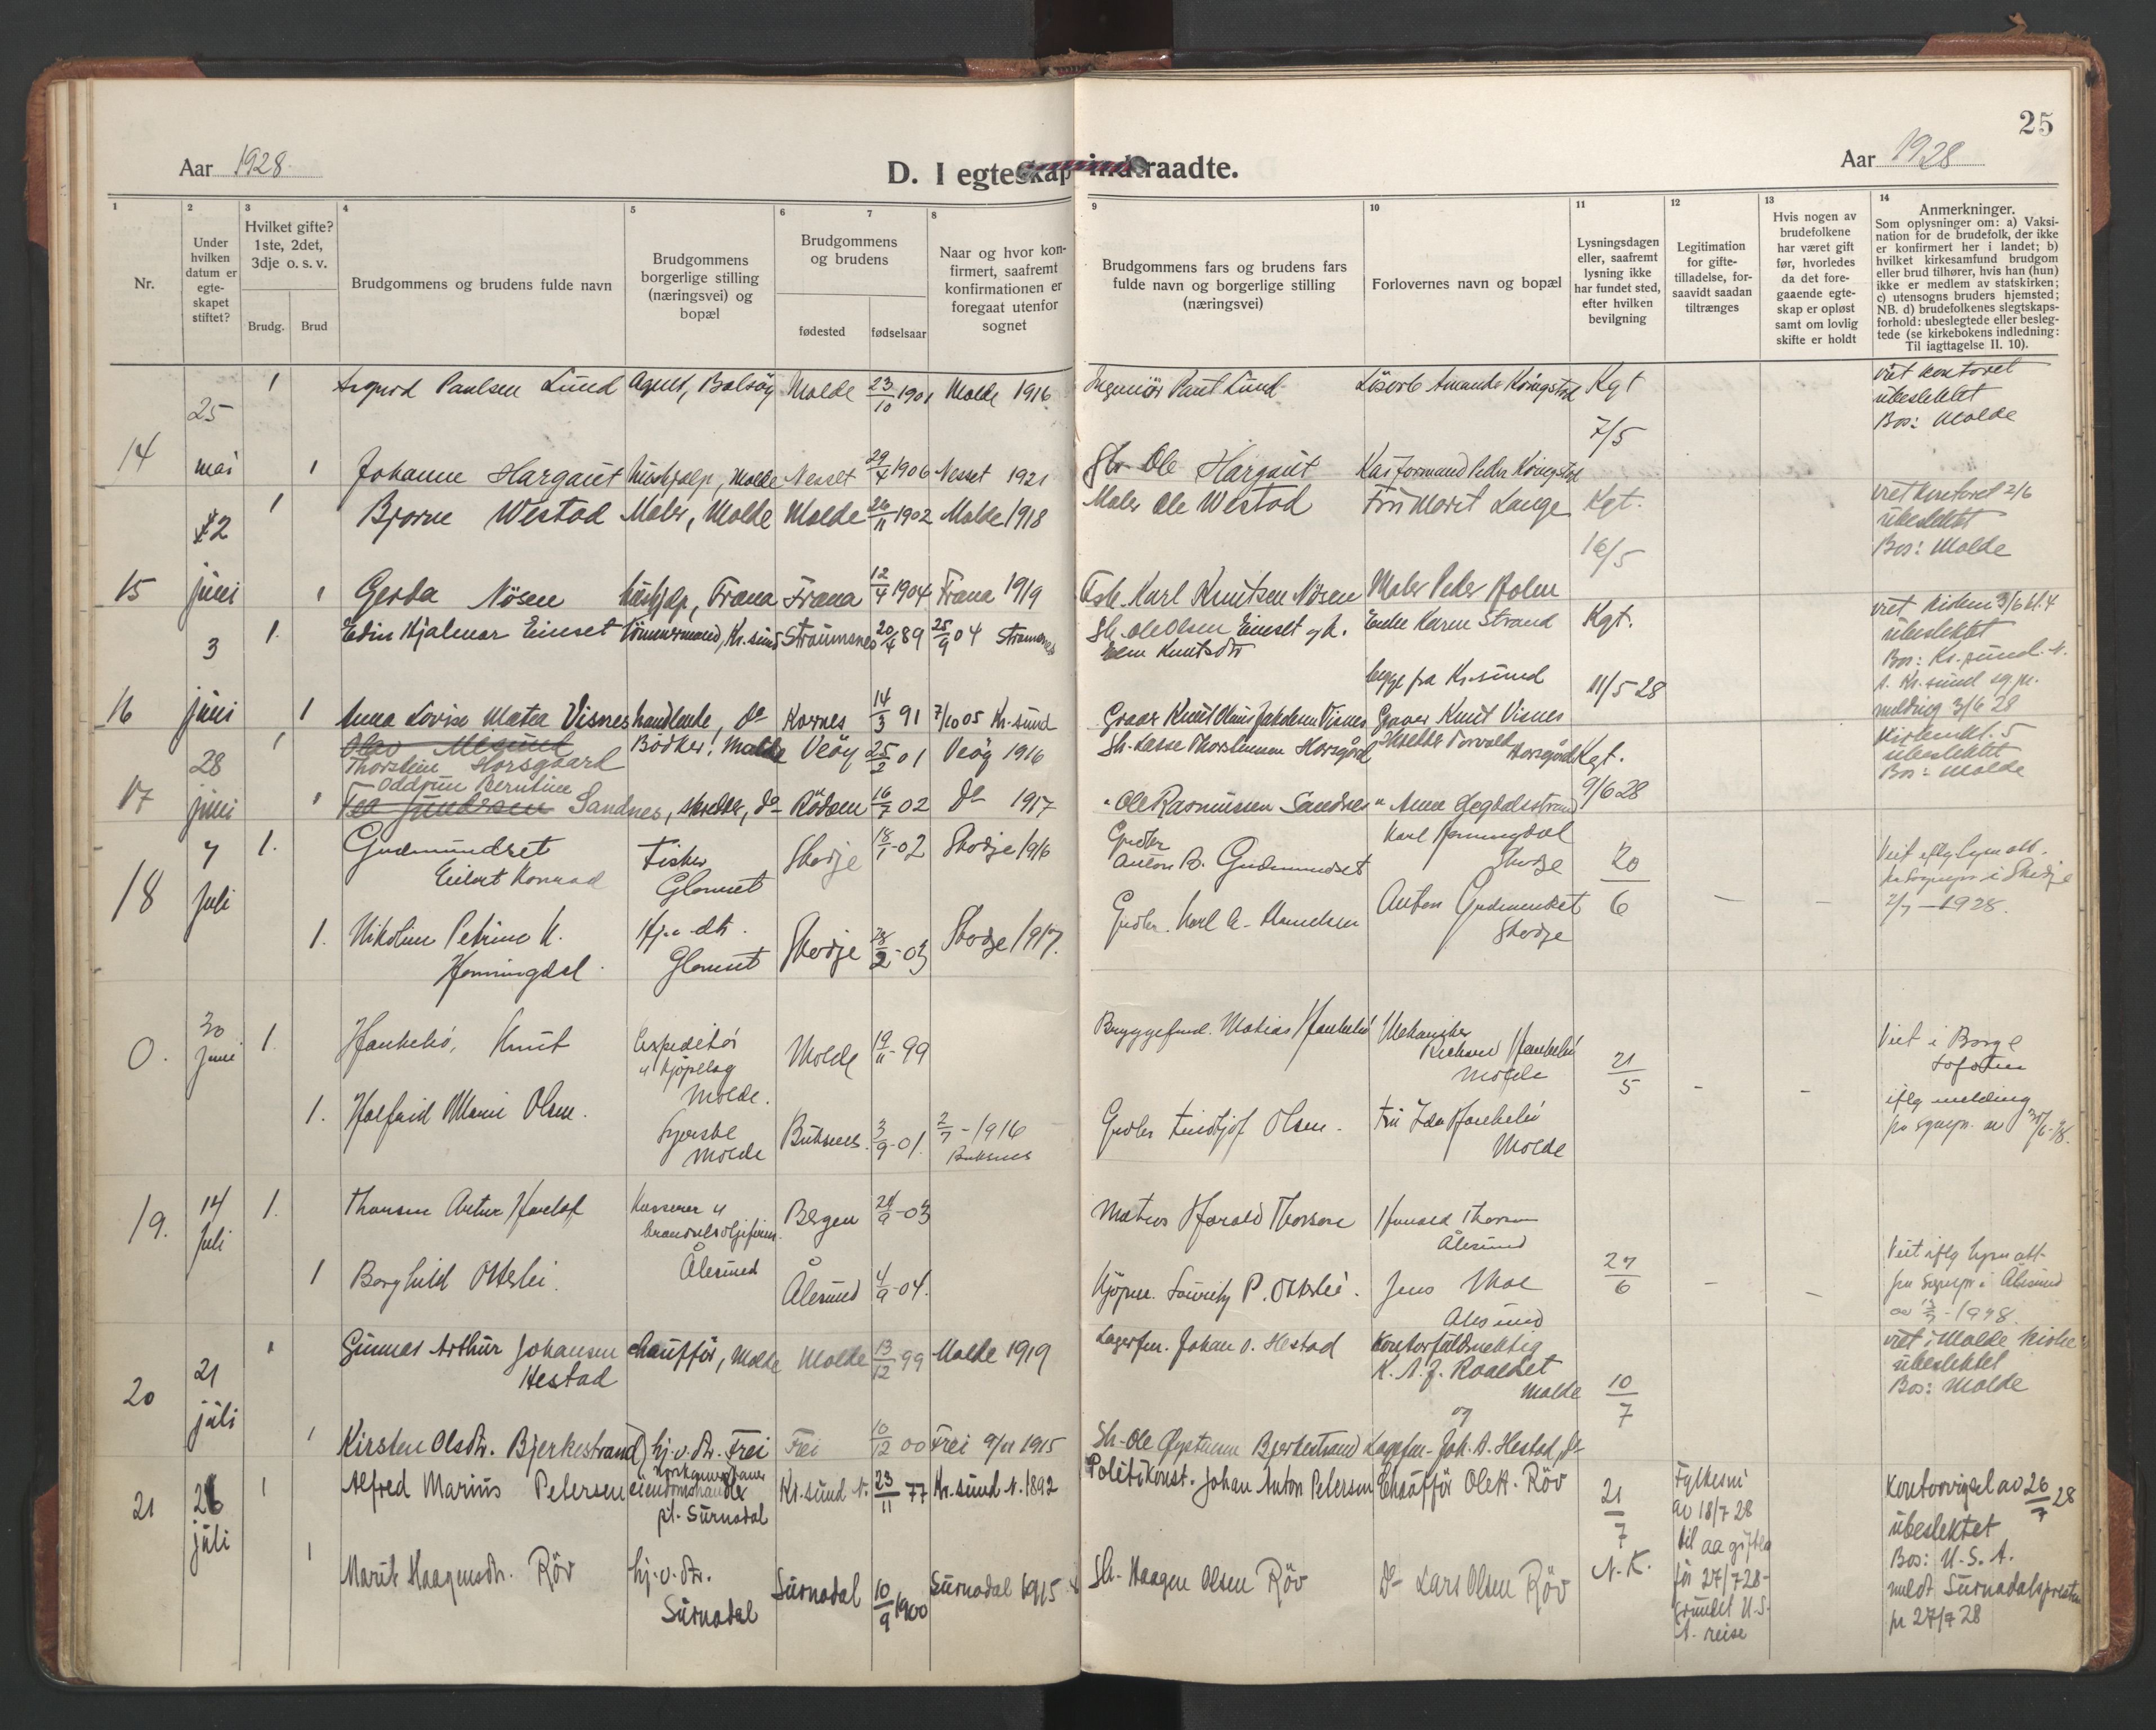 25
Aar 1928
D. I egteskap indtraadte.
Aar 1928
1
2
3
4
5
6
7
8
9
10
11
12
13
14
Nr.
Under hvilken datum er egte-skapet stiftet?
Hvilket gifte? 1ste, 2det, 3dje o. s. v.
Brudg.
Brud
Brudgommens og brudens fulde navn
Brudgommens borgerlige stilling (næringsvei) og bopæl
Brudgommens og brudens
fødested
fødselsaar
Naar og hvor kon-firmert, saafremt konfirmationen er foregaat utenfor sognet
Brudgommens fars og brudens fars fulde navn og borgerlige stilling (næringsvei)
Forlovernes navn og bopæl
Lysningsdagen eller, saafremt lysning ikke har fundet sted, efter hvilken bevilgning
Legitimation for gifte-tilladelse, for-saavidt saadan tiltrænges
Hvis nogen av brudefolkene har været gift før, hvorledes da det fore-gaaende egte-skap er opløst samt om lovlig skifte er holdt
Anmerkninger.
Som oplysninger om: a) Vaksi-nation for de brudefolk, der ikke er konfirmert her i landet; b) hvilket kirkesamfund brudgom eller brud tilhører, hvis han (hun) ikke er medlem av statskirken; c) utensogns bruders hjemsted; NB. d) brudefolkenes slegtskaps-forhold: ubeslegtede eller besleg-tede (se kirkebokens indledning: Til iagttagelse II. 10).
14
25 mai
1
Sigurd Paulsen Lund
Agent, Bolsöy
Molde
23/10 1901
Molde 1916
Ingeniör Paul Lund
Amanda Kringstad
Kgt
7/5
viet kontoret
übeslektet
Bos: Molde
1
Johanne Hargaut
hüshjelp, Molde
Nesset
29/4 1906
Nesset 1921
Gbr. Ole Hargaut
Kaiformand Peder Kringstad
15
2 jüni
1
Bjarne Westad
Maler, Molde
Molde
26/11 1902
Molde 1918
Maler Ole Westad
Frü Marit Lange
Kgt.
16/5
viet kontoret 2/6
übeslektet
Bos: Molde
1
Gerda Nösen
hüshjelp, Fræna
Fræna
12/4 1904
Fræna 1919
Fisk. Karl Knutsen Nösen
Maler Peder Holm
16
3 jüni
1
Edin Hjalmar Einset
tömmermand, Kr.sünd
Straumsnes
20/4 89
25/9 04 Straumsnes
Gb. Ole Olsen Einset og h.
Knutsdtr
Enke Karen Strand
begge fra Kr.sünd
Kgt.
11/5 28
viet kirken 3/6 kl. 4
übeslektet
Bos: Kr.sünd. N.
A. Kr.sünd sg.pr.
melding 3/6 28
1
Anna Lovise Matea Visnes
handlende, do
Kornes
14/3 91
7/10 05 Kr.sünd
Graver Knut Visnes
17
28 jüni
1
Thorstein Horsgaard
Bödker, Molde
Veöy
25/2 01
Veöy 1916
Gb. Lasse Thorsteinsen Horsgård
Torvald Horsgård
Kgt.
9/6 28
kirken kl. 5
übeslektet
Bos: Molde
1
Oddrün Berntine
Sandnes, skredder, do
Rödsen
16/7 02
do 1917
" Ole Rasmussen Sandnes
" Anne Legdalsstrand
18
7 Juli
1.
Gudmundset
Eilert Konrad
Fisker
Glomset
Skodje
18/1 - 02
Skodje 1916
Grdbr
Anton B. Gudmundset
Karl Henningdal
Skodje
20/6
-
-
Viet iflg lysn.att.
fra sognepr. i Skodje
2/7 - 1928.
1.
Nikoline Petrine K.
Henningdal.
Hj.v. dtr.
Glomset
Skodje
28/2 - 03
Skodje 1917.
Grdbr. Karl
Anton Gudmundset
Skodje
0.
30 juni
1.
Haukebö, Knut
Expeditör
u Kjöpelag
Molde.
Molde
19/11 - 99
Bryggeformd. Matias Haukebö
Mekaniker
Rikhard Haukebö
Molde
21/5
-
-
Viet i Borge
Lofoten
iflg melding
fra sognepr. av 30/6 - 28.
1.
Halfrid Marie Olsen.
Molde
Buksnes
3/9 - 01.
2/7 - 1916
Buksnes
Grdbr Fridtjof Olsen.
Frü Ida Haukebö
Molde
19.
14 Juli
1.
Thorsen Artur Harlof
Kasserer u
Ålesund
Bergen
24/9 - 03
Matros Harald Thorsen
Harald Thorsen
Ålesund
27/6
-
-
Viet iflg lysn.att.
fra sognepr. i Ålesund
1
Borghild Otterlei.
Ålesund
4/9 - 04.
Kjöpm. P. Otterlei.
Jens Moe
Ålesund
20
21 jüli
1
Gunnar Arthür Johansen
Hestad
chaufför, Molde
Molde
13/12 99
Molde 1919
Lagerfm. Johan O. Hestad
Kontorfuldmektig
K. A. J. Roaldset
Molde
og
10/7
viet i Molde kirke
übeslektet
Bos: Molde
1
Kirsten Olsdtr. Bjerkestrand
hj.v.dtr. Frei
Frei
10/12 00
Frei 9/11 1915
Gb. Ole Bjerkestrand
Lagerfm. Joh. A. Hestad, do
21
26 jüli
1
Alfred Marius Petersen
eiendomshandler
pt. Sürnadal
Kr.sünd N.
23/11 77
Kr.sünd N. 1892
Politikonst. Johan Anton Petersen
Chaufför Ole H. Röv
21/7
N.K.
Fylkesm
av 18/7 28
til aa giftes
för 27/7 28
grundet U.S.
A. reise
Kontorvigsel av 26/7 28
übeslektet
Bos: U.S.A.
meldt Sürnadals presten
pr 27/7 28
1
Marit Haagensdtr. Röv
hj.v.dtr.
Sürnadal
Sürnadal
10/9 1900
Sürnadal 1915
Gb. Haagen Olsen Röv
Do Lars Olsen Röv